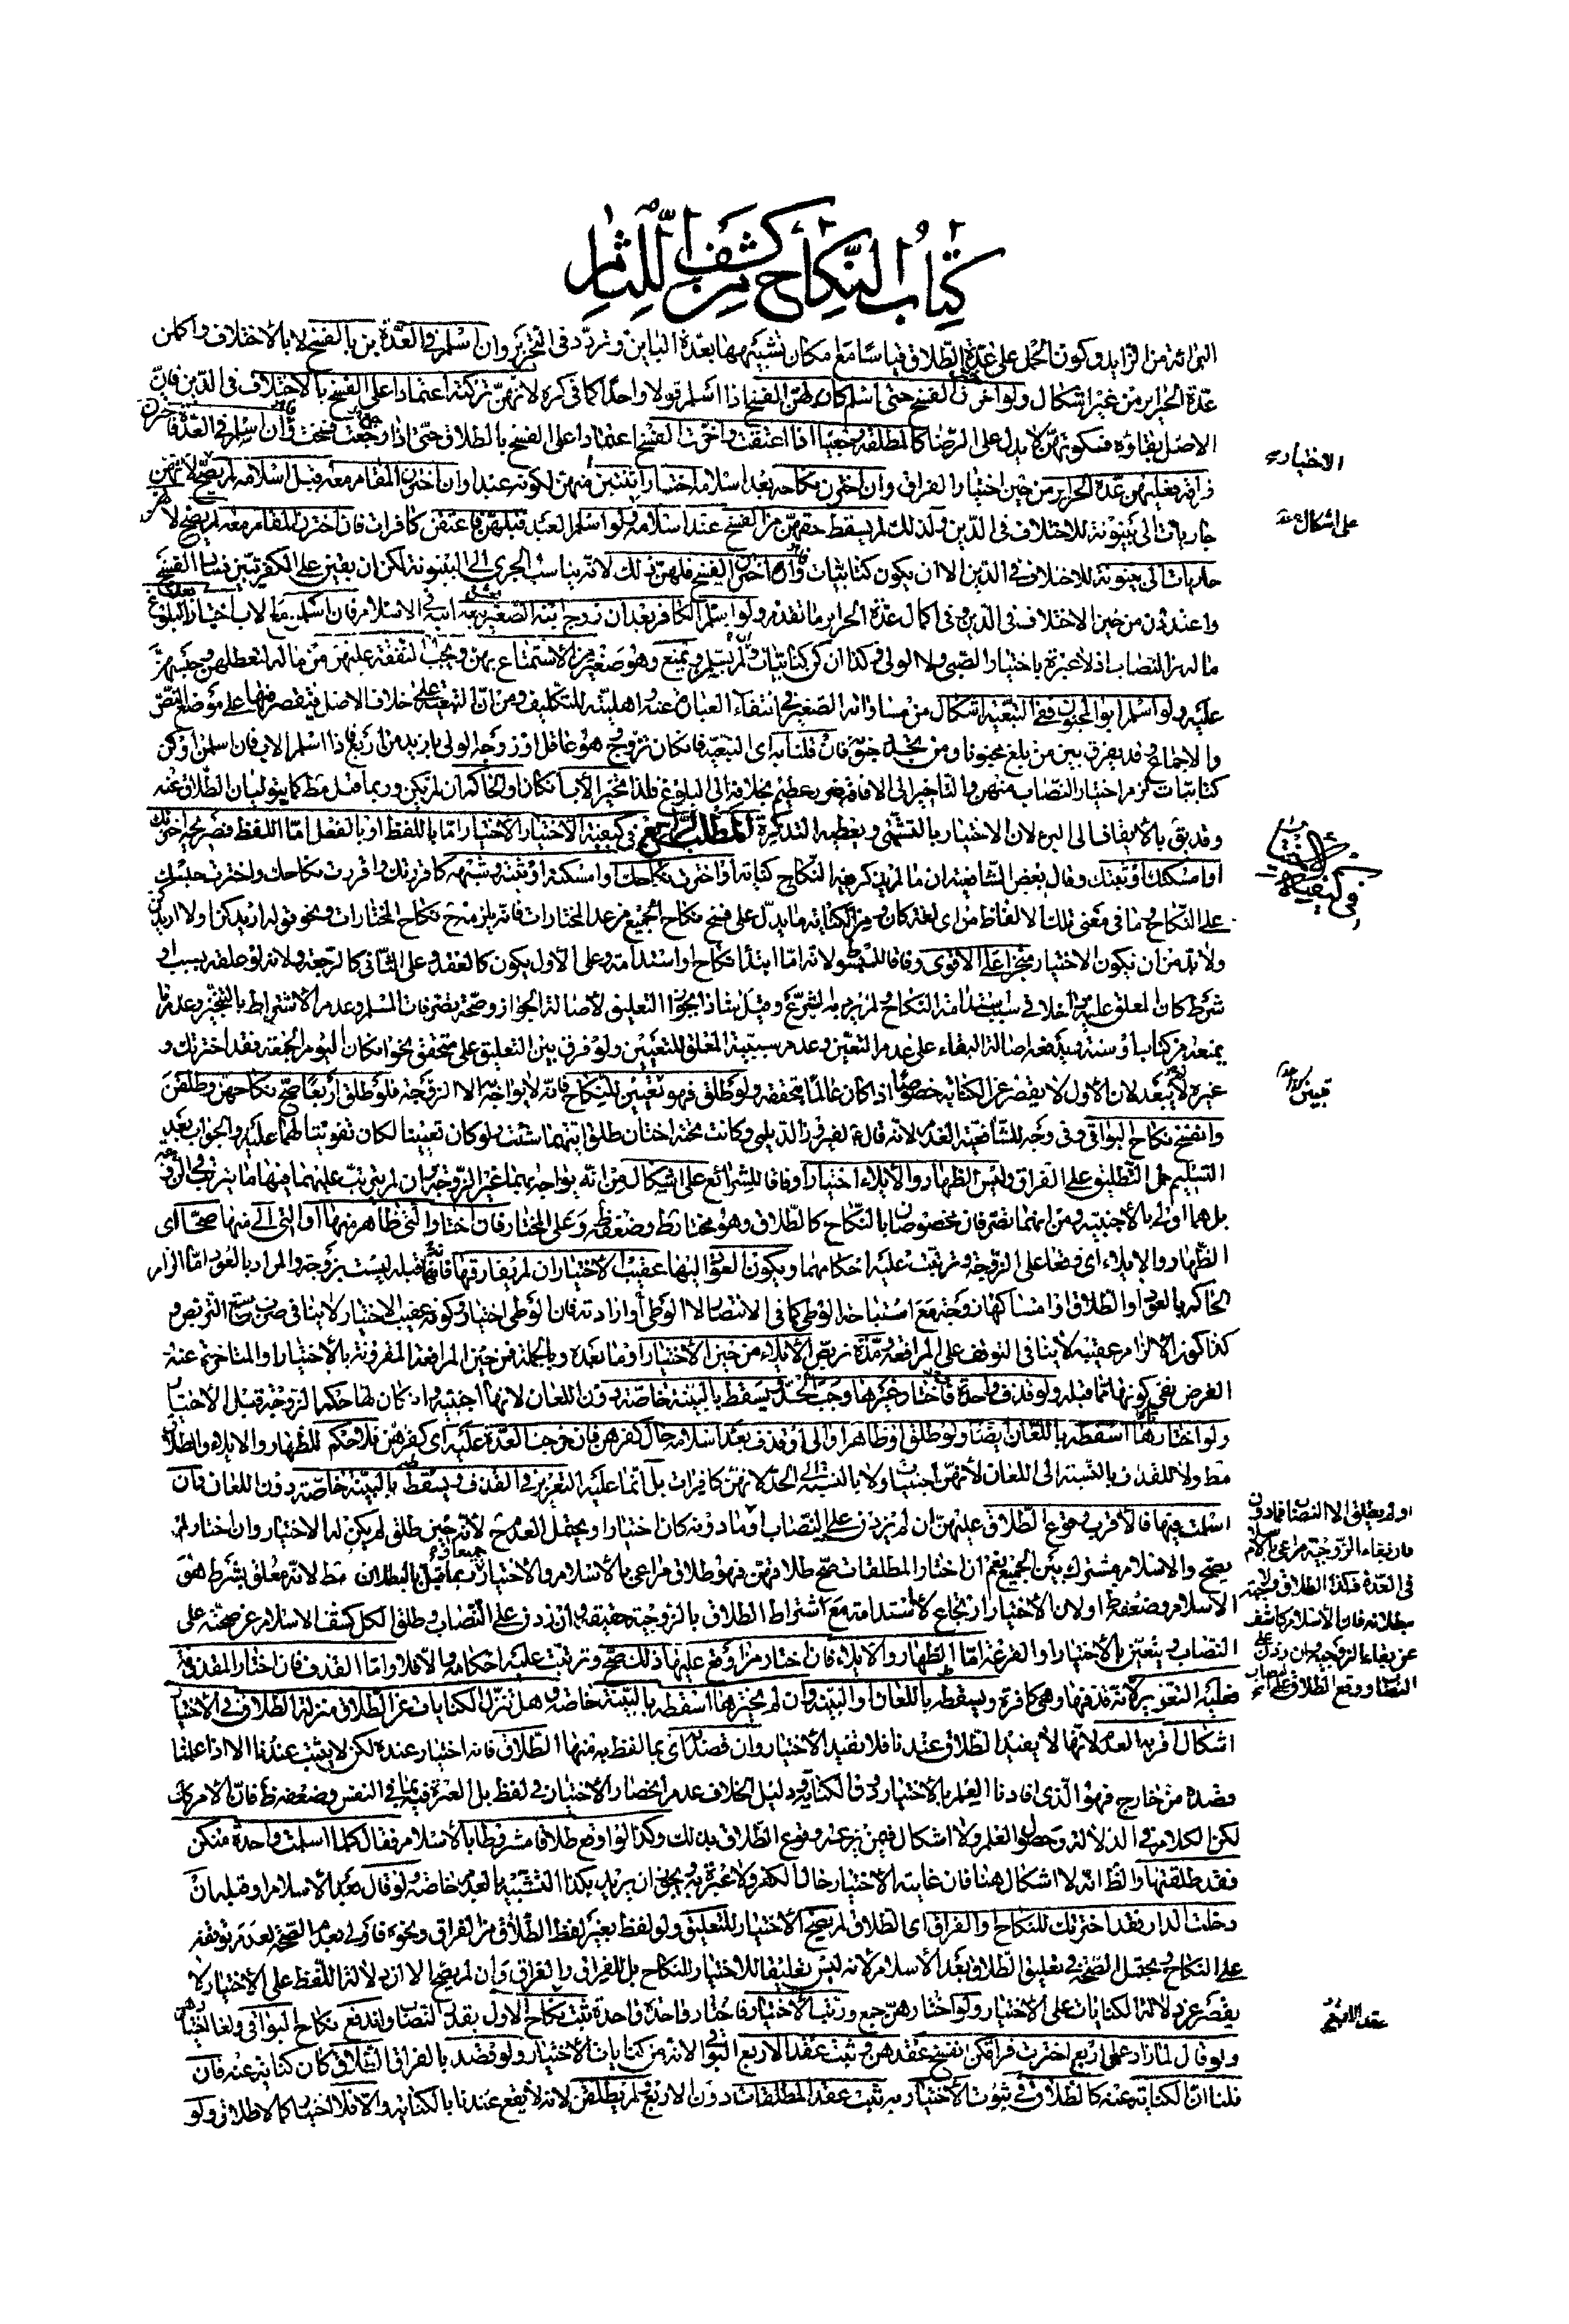 كتاب النكاح من كشف اللثام
البرائة من الزايد وكون الحمل على عدة الطلاق قياسا مع امكان تشبيهها بعدة الباين وتردد في التحرير وان اسلم في العدة بن بالفسخ لا بالاختلاف واكملن
عدة الحراير من غير اشكال ولو اخرن الفسخ حتى اسلم كان لهن الفسخ اذا اسلم قولا واحدا كما في كره لانهن تركنه اعتمادا على الفسخ بالاختلاف في الدين فان
الاصل بقاؤه فسكوتهن لا يدل على الرضا كالمطلقة رجعيا اذا اعتقت واخرت الفسخ اعتمادا على الفسخ بالطلاق حتى اذا رجعت فسخت وان اسلم في العدة فاخترن
فراقه فعليهن عدة الحراير من حين اختيار الفراق وان اخترن نكاحه بعد اسلامه اختار اثنتين منهن لكونه عبدا وان اخترن المقام معه قبل اسلامه لم يصح لانهن
جاريات الى بينونة للاختلاف في الدين ولذلك لم يسقط حقهن من الفسخ عند اسلامه ولو اسلم العبد قبلهن فاعتقن كافرات فان اخترن المقام معه لم يصح لانهن
جاريات الى بينونة للاختلاف في الدين الا ان يكون كتابيات وان اخترن الفسخ فلهن ذلك لانه يناسب الجري الى البينونة لكن ان بقين على الكفر تبين فساد الفسخ
واعتددن من حين الاختلاف في الدين وفي اكمال عدة الحراير ما تقدم ولو اسلم الكافر بعد ان زوج ابنه الصغير بعشر تبعه ابنه في الاسلام فان اسلمن مع الاب اختار بعد البلوغ
ما له من النصاب اذ لا عبرة باختيار الصبي ولا الولي وكذا ان كن كتابيات ولم يسلمن ويمنع وهو صغير من الاستمتاع بهن ويجب النفقة عليهن من ماله لتعطلهن وحبسهن
عليه ولو اسلم ابو المجنون ففي التبعية اشكال من مساواته الصغير في انتفاء العبارة عنه واهليته للتكليف ومن ان التبعية على خلاف الاصل فيقصر فيها على موضع النص
والاجماع وقد يفرق بين من بلغ مجنونا ومن تجدد جنونه فان قلنا به اى التبعية فان كان تزوج وهو عاقل او زوجه الولي بازيد من اربع فاذا اسلم الاب فان اسلمن او كن
كتابيات لزم اختيار النصاب منهن والتاخير الى الافاقة ضرر عظيم بخلافه الى البلوغ فلذا يتخير الاب ان كان او الحاكم ان لم يكن وربما قيل مط كما يتوليان الطلاق عنه
وقد يق بالايقاف الى البرء لان الاختيار بالتشهي ويعطيه التذكرة المطلب الرابع في كيفية الاختيار الاختيار اما باللفظ او بالفعل اما اللفظ فصريحه اخترتك
او امسكتك او ثبتك وقال بعض الشافعية ان ما لم يذكر فيه النكاح كناية او اخترت نكاحك او امسكته او ثبته وشبهه كاقررتك واقررت نكاحك واخترت حبسك
على النكاح وما في معنى تلك الالفاظ من اى لغة كان ومن الكناية ما يدل على فسخ نكاح الجميع من عدا المختارات فانه يلزم منه نكاح المختارات ونحو قوله اريدكن او لا اريدكن
ولا بد من ان يكون الاختيار منجزا على الاقوى وفاقا للمبسوط لانه اما ابتداء نكاح او استدامته وعلى الاول يكون كالعقد وعلى الثاني كالرجعة ولانه لو علقه بسبب او
شرط كان المعلق عليه مدخلا في سببية استدامة النكاح ولم يرد به الشرع وقيل شاذا بجواز التعليق لاصالة الجواز وصحة تصرفات المسلم وعدم الاشتراط بالتنجيز وعدم ما
يمنعه من كتاب او سنة ويدفعه اصالة البقاء على عدم التعين وعدم سببية المعلق للتعيين ولو فرق بين التعليق على متحقق نحو ان كان اليوم الجمعة فقد اخترتك و
غيره لم يبعد لان الاول لا يقصر عن الكناية خصوصا اذا كان عالما بتحققه ولو طلق فهو تعيين للنكاح فانه لا يواجه به الا الزوجة فلو طلق اربعا صح نكاحهن وطلقن
وانفسخ نكاح البواقي وفي وجه للشافعية العدم لانه قال لفيروز الديلمي وكانت تحته اختان طلق ايتهما شئت ولو كان تعيينا لكان تفويتا لهما عليه والجواب بعد
التسليم حمل التطليق على الفراق وليس الظهار والايلاء اختيارا وفاقا للشرائع على اشكال من انه يواجه بهما غير الزوجة وان لم يترتب عليهما فيها ما يترتب في الزوجة
بل هما اولى بالاجنبية ومن انهما تصرفان مخصوصان بالنكاح كالطلاق وهو مختار ط وضعفه ظ وعلى المختار فان اختار التي ظاهر منها او التي الى منها صحا اى
الظهار والايلاء اى وقعا على الزوجة وترتبت عليه احكامهما ويكون العود اليها عقيب الاختيار ان لم يفارقها فانها قبله ليست بزوجة والمراد بالعود اما الزام
الحاكم بالعود او الطلاق او امساكها زوجة مع استباحة الوطى كما في الانتصار لا الوطى او ارادته فان الوطى اختيار وكونه عقيب الاختيار لا ينافي ضرب مدة التربص و
كذا كون الالزام عقيبه لا ينافي التوقف على المرافعة ومدة تربص الايلاء من حين الاختيار او ما بعده وبالجملة من حين المرافعة المقرونة بالاختيار او المتاخرة عنه
الغرض نفي كونها مما قبله ولو قذف واحدة فاختار غيرها وجب الحد ويسقط بالبينة خاصة دون اللعان لانها اجنبية وان كان لها حكم الزوجة قبل الاختيار
ولو اختارها اسقطه باللعان ايضا ولو طلق او ظاهر او الى او قذف بعد اسلامه حال كفرهن فان خرجت العدة عليه اى كفرهن فلا حكم للظهار والايلاء والطلاق
مط ولا للقذف بالنسبة الى اللعان لانهن اجنبيات ولا بالنسبة الى الحد لانهن كافرات بل انما عليه التعزير في القذف ويسقط بالبينة خاصة دون اللعان فان
اسلمت فيها فالاقرب وقوع الطلاق عليهن ان لم يزدن على النصاب او ما دونه كان اختيارا ويحتمل العدم لانه حين طلق لم يكن له الاختيار وان اختار لم
يصح والاسلام مشترك بين الجميع نعم ان اختار المطلقات صح طلاقهن فهو طلاق مراعى بالاسلام والاختيار وربما قيل بالبطلان مط لانه معلق بشرط هو
الاسلام وضعفه ظ ولان الاختيار ارتجاع لا استدامة مع اشتراط الطلاق بالزوجية حقيقة وان زدن على النصاب وطلق الكل كشف الاسلام عن صحته على
النصاب ويتعين بالاختيار او القرعة اما الظهار والايلاء فان اختار من اوقع عليها ذلك صح وترتبت عليه احكامه والا فلا واما القذف فان اختار المقذوفة
فعليه التعزير لانه قذفها وهى كافرة ويسقطه باللعان او البينة وان لم يخترها اسقطه بالبينة خاصة وهل تنزل الكنايات عن الطلاق منزلة الطلاق في الاختيار
اشكال اقربه العدم لانها لا يفيد الطلاق عندنا فلا تفيد الاختيار وان قصد اى بما لفظ به منها الطلاق فانه اختيار عنده لكن لا يثبت عندنا الا اذا علمنا
قصده من خارج فهو الذى افادنا العلم بالاختيار دون الكناية ودليل الخلاف عدم انحصار الاختيار في لفظ بل العبرة فيه بما في النفس وضعفه ظ فان الامر كك
لكن الكلام في الدلالة وحصول العلم ولا اشكال فيمن يرى وقوع الطلاق بذلك وكذا لو اوقع طلاقا مشروطا بالاسلام فقال كلما اسلمت واحدة منكن
فقد طلقتها والظ انه لا اشكال هنا فان غايته الاختيار حال الكفر ولا عبرة به ويجوز ان يريد بكذا التشبيه بالعدم خاصة ولو قال بعد الاسلام وقبله ان
دخلت الدار فقد اخترتك للنكاح او الفراق اى الطلاق لم يصح الاختيار للتعليق ولو لفظ بغير لفظ الطلاق من الفراق ونحوه فاولى بعدم الصحة لعدم توقفه
على النكاح ويحتمل الصحة في تعليق الطلاق بعد الاسلام لانه ليس تعليقا للاختيار للنكاح بل للفراق والفراق وان لم يصح الا ان دلالة اللفظ على الاختيار لا
يقصر عن دلالة الكنايات على الاختيار ولو اختارهن جمع ورتب الاختيار فاختار واحدة واحدة ثبت نكاح الاول بقدر النصاب واندفع نكاح البواقي ولغا اختيارهن
ولو قال لما زاد على اربع اخترت فراقكن انفسخ عقدهن وثبت عقد الاربع البواقي لانه من كنايات الاختيار ولو قصد بالفراق الطلاق كان كناية عنه فان
قلنا ان الكناية عنه كالطلاق في ثبوت الاختيار به ثبت عقد المطلقات دون الاربع لم يطلقن لانه لا يقع عندنا بالكناية والا فلا اختيار كما لا طلاق ولو
الاختيار
على اشكال
في كيفية الاختيار
تبين
او لم يعلق الا النصاب فما دون
فان بقاء الزوجية مراعى بالاسلام
في العدة فكذا الطلاق
بخلافه فان الاسلام كاشف
عن بقاء الزوجية وان زدن على
النصاب وقع الطلاق على
عقد الاربع